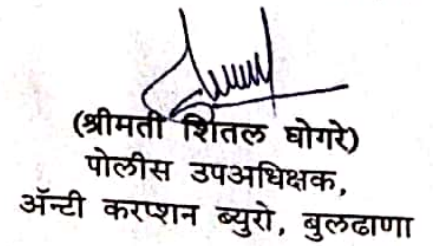 (श्रीमती शितल घोगरे)
पोलीस उपअधिक्षक,
ॲन्टी करप्शन ब्युरो, बुलढाणा